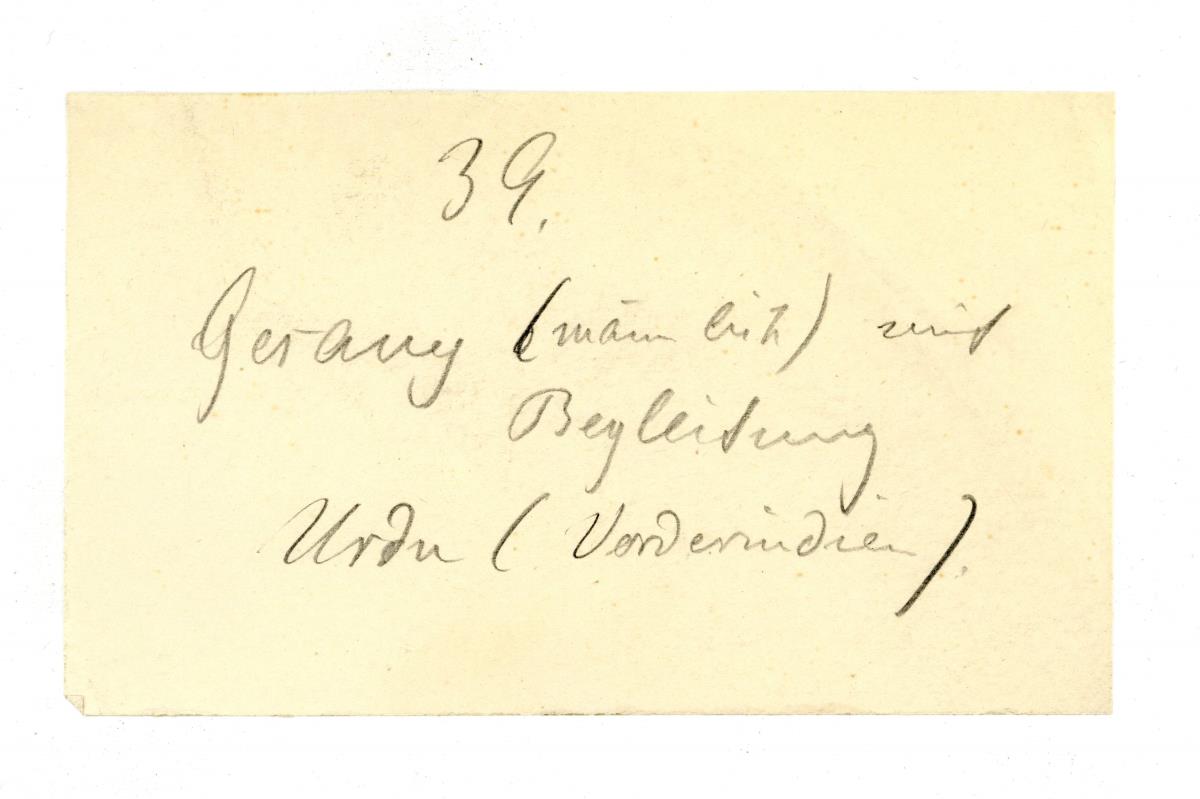 39.
Gesang (männlich) mit
Begleitung
Urdu (Vorderindien).